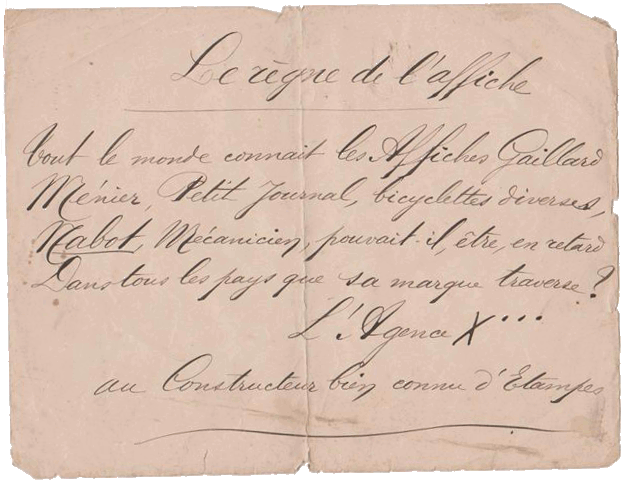 Le règne de l'affiche
Tout le monde connait les Affiches Gaillard
Ménier, Petit Journal, bicyclettes diverses,
Nabot, Mécanicien, pouvait-il, être, en retard
Dans tous les pays que sa marque traverse ?
L'Agence X...
au Constructeur bien connu d'Etampes